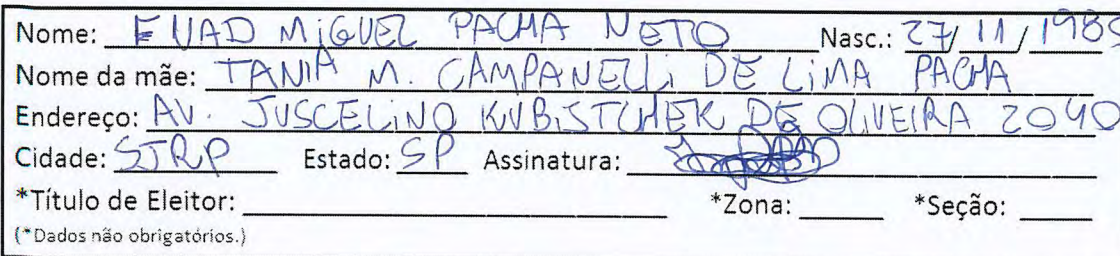 Nome: FUAD MIGUEL PACHA NETO Nasc.: 27/11/1989
Nome da mãe: TANIA M. CAMPANELLI DE LIMA PACHA
Endereço: AV. JUSCELINO KUBISTCHEK DE OLIVEIRA 2040
Cidade: SJRP Estado: SP Assinatura:
*Título de Eleitor: *Zona: *Seção:
(*Dados não obrigatórios.)